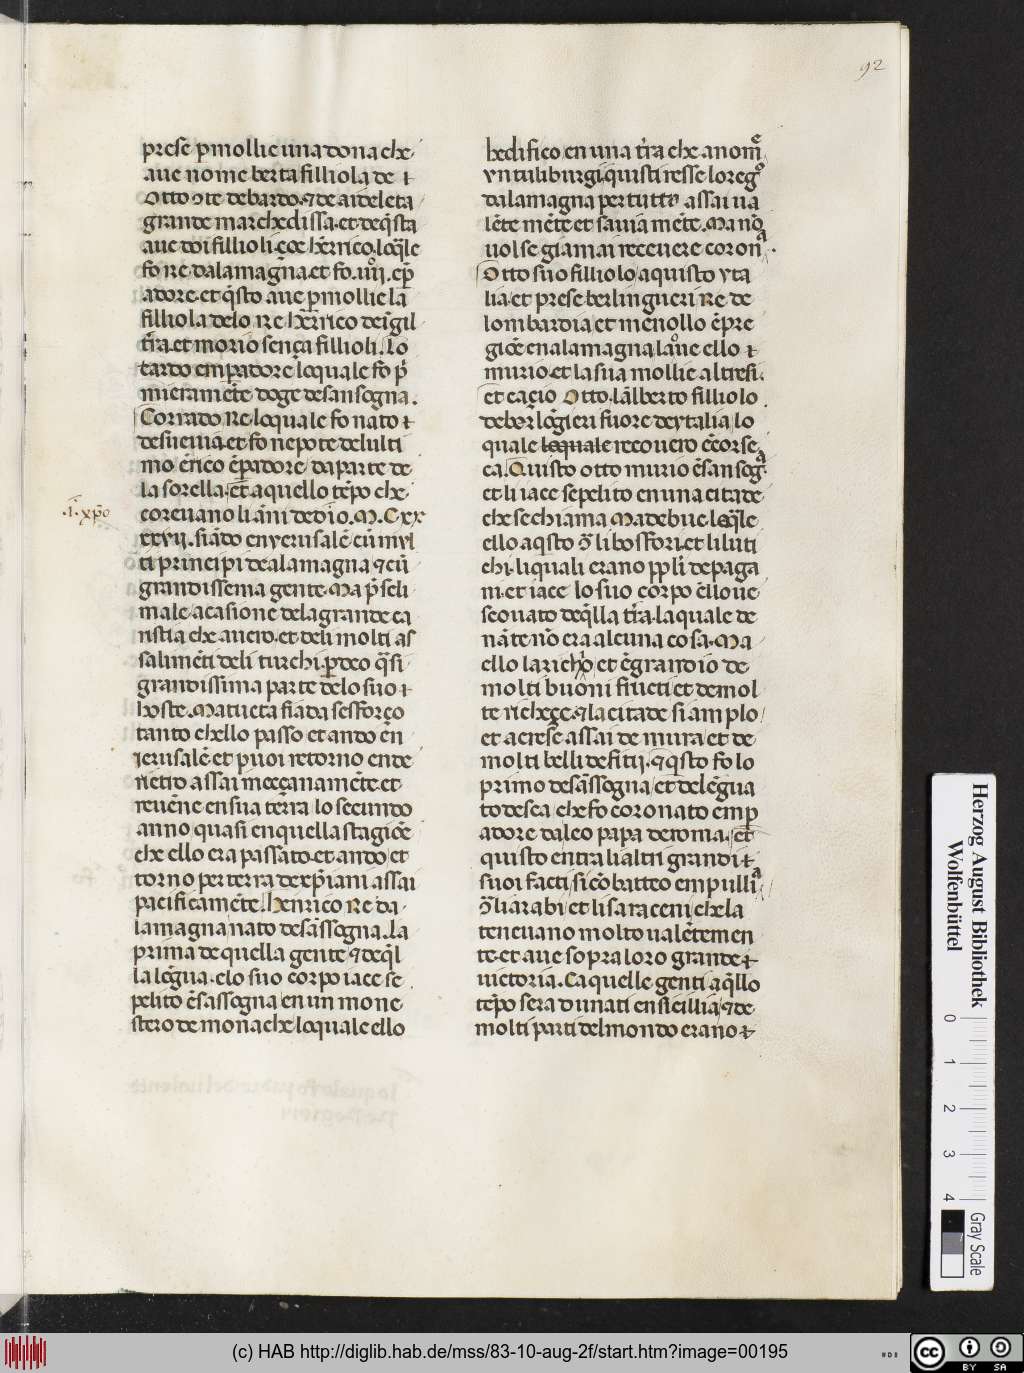 92
prese pmollie una dona che
aue nome berta filliola de
otto ↄte debardo ⁊ de aideleta
grande marchedissa et deq̃sta
aue doi fillioli coe hẽrico loq̃le
fo re dalamagña et fo iiij ep̃
adore et q̃sto aue pmollie la
filliola delo re hẽrrico deigil
tr̃a et morio sença fillioli Lo
tardo empadore loquale fo p̃
mieramẽte doge desansogna
Corrado Re loquale fo nato
desueuia et fo nepote delulti
mo ẽrico ẽpadore da parte de
la sorella et aquello tẽpo che
.A. xp̃o
coreuano li ãni dedio M C xx
xxvij siãdo en yerusalẽ cũ mvl
ti principi dealamagna ⁊ cũ
grandissema gente Ma p̃seli
male acasione dela grande ca
ristia che auero et deli molti as
salimẽti deli turchi pdeo q̃si
grandissima parte delo suo
hoste Ma tucta fiada sefforço
tanto chello passo et ando ẽn
ierusalẽ et puoi retorno ende
rietro assai meççanamẽte et
reuẽne en sua terra lo secundo
anno quasi en quella stagiõe
che ello era passato et ando et
torno per terra dexp̃iani assai
pacificamẽte Henrico Re da
lamagna nato desãssogna La
prima de quella gente ⁊ deq̃l
la lẽgua elo suo corpo iace se
pelito ẽsassogna en un mone
stero de monache loquale ello
hedifico en una tr̃a che a nom̃
yntuliburgi quisti resse lo reg
dalamagna per tutto assai ua
lẽte mẽte et sauia mẽte Ma nõ
uolse giamai receuere coron
Otto suo filliolo aquisto yta
lia et prese berlingueri Re de
lombardia et mẽnollo ẽpre
giõe en alamagna laoue ello
murio et la sua mollie altresi
et cacio Otto lãlberto filliolo
deberlẽgieri fuore deytalia lo
quale loquale recouero ẽcorse
ca Quisto otto murio ẽsansog
et li iace sepelito en una citade
che se chiama Madebuc loq̃le
ello aq̃sto ↄ̃ li bossori et li luti
chi li quali erano pp̃li depaga
ni et iace lo suo corpo ẽlloue
scouato deq̃lla tr̃a la quale de
nãte nõ era alcuna cosa Ma
ello larichi et ẽgrandio de
molti buoni fiueti et de mol
te richeçe ⁊ la citade si amplo
et acrese assai de mura et de
molti belli defitij ⁊ q̃sto fo lo
primo desãssogna et delẽgua
todesca che fo coronato emp
adore daleo papa deroma et
quisto entra li altri grandi
suoi facti si cõbatteo em pulli
ↄ̃ li arabi et li saraceni che la
teneuano molto ualẽtemen
te et aue sopra loro grande
uictoria Ca quelle genti a q̃llo
tẽpo sera dunati en sicillia ⁊ de
molti parti del mondo erano
Herzog August Bibliothek
Wolfenbüttel
0 1 2 3 4
Gray Scale
(c) HAB http://diglib.hab.de/mss/83-10-aug-2f/start.htm?image=00195
cc BY SA